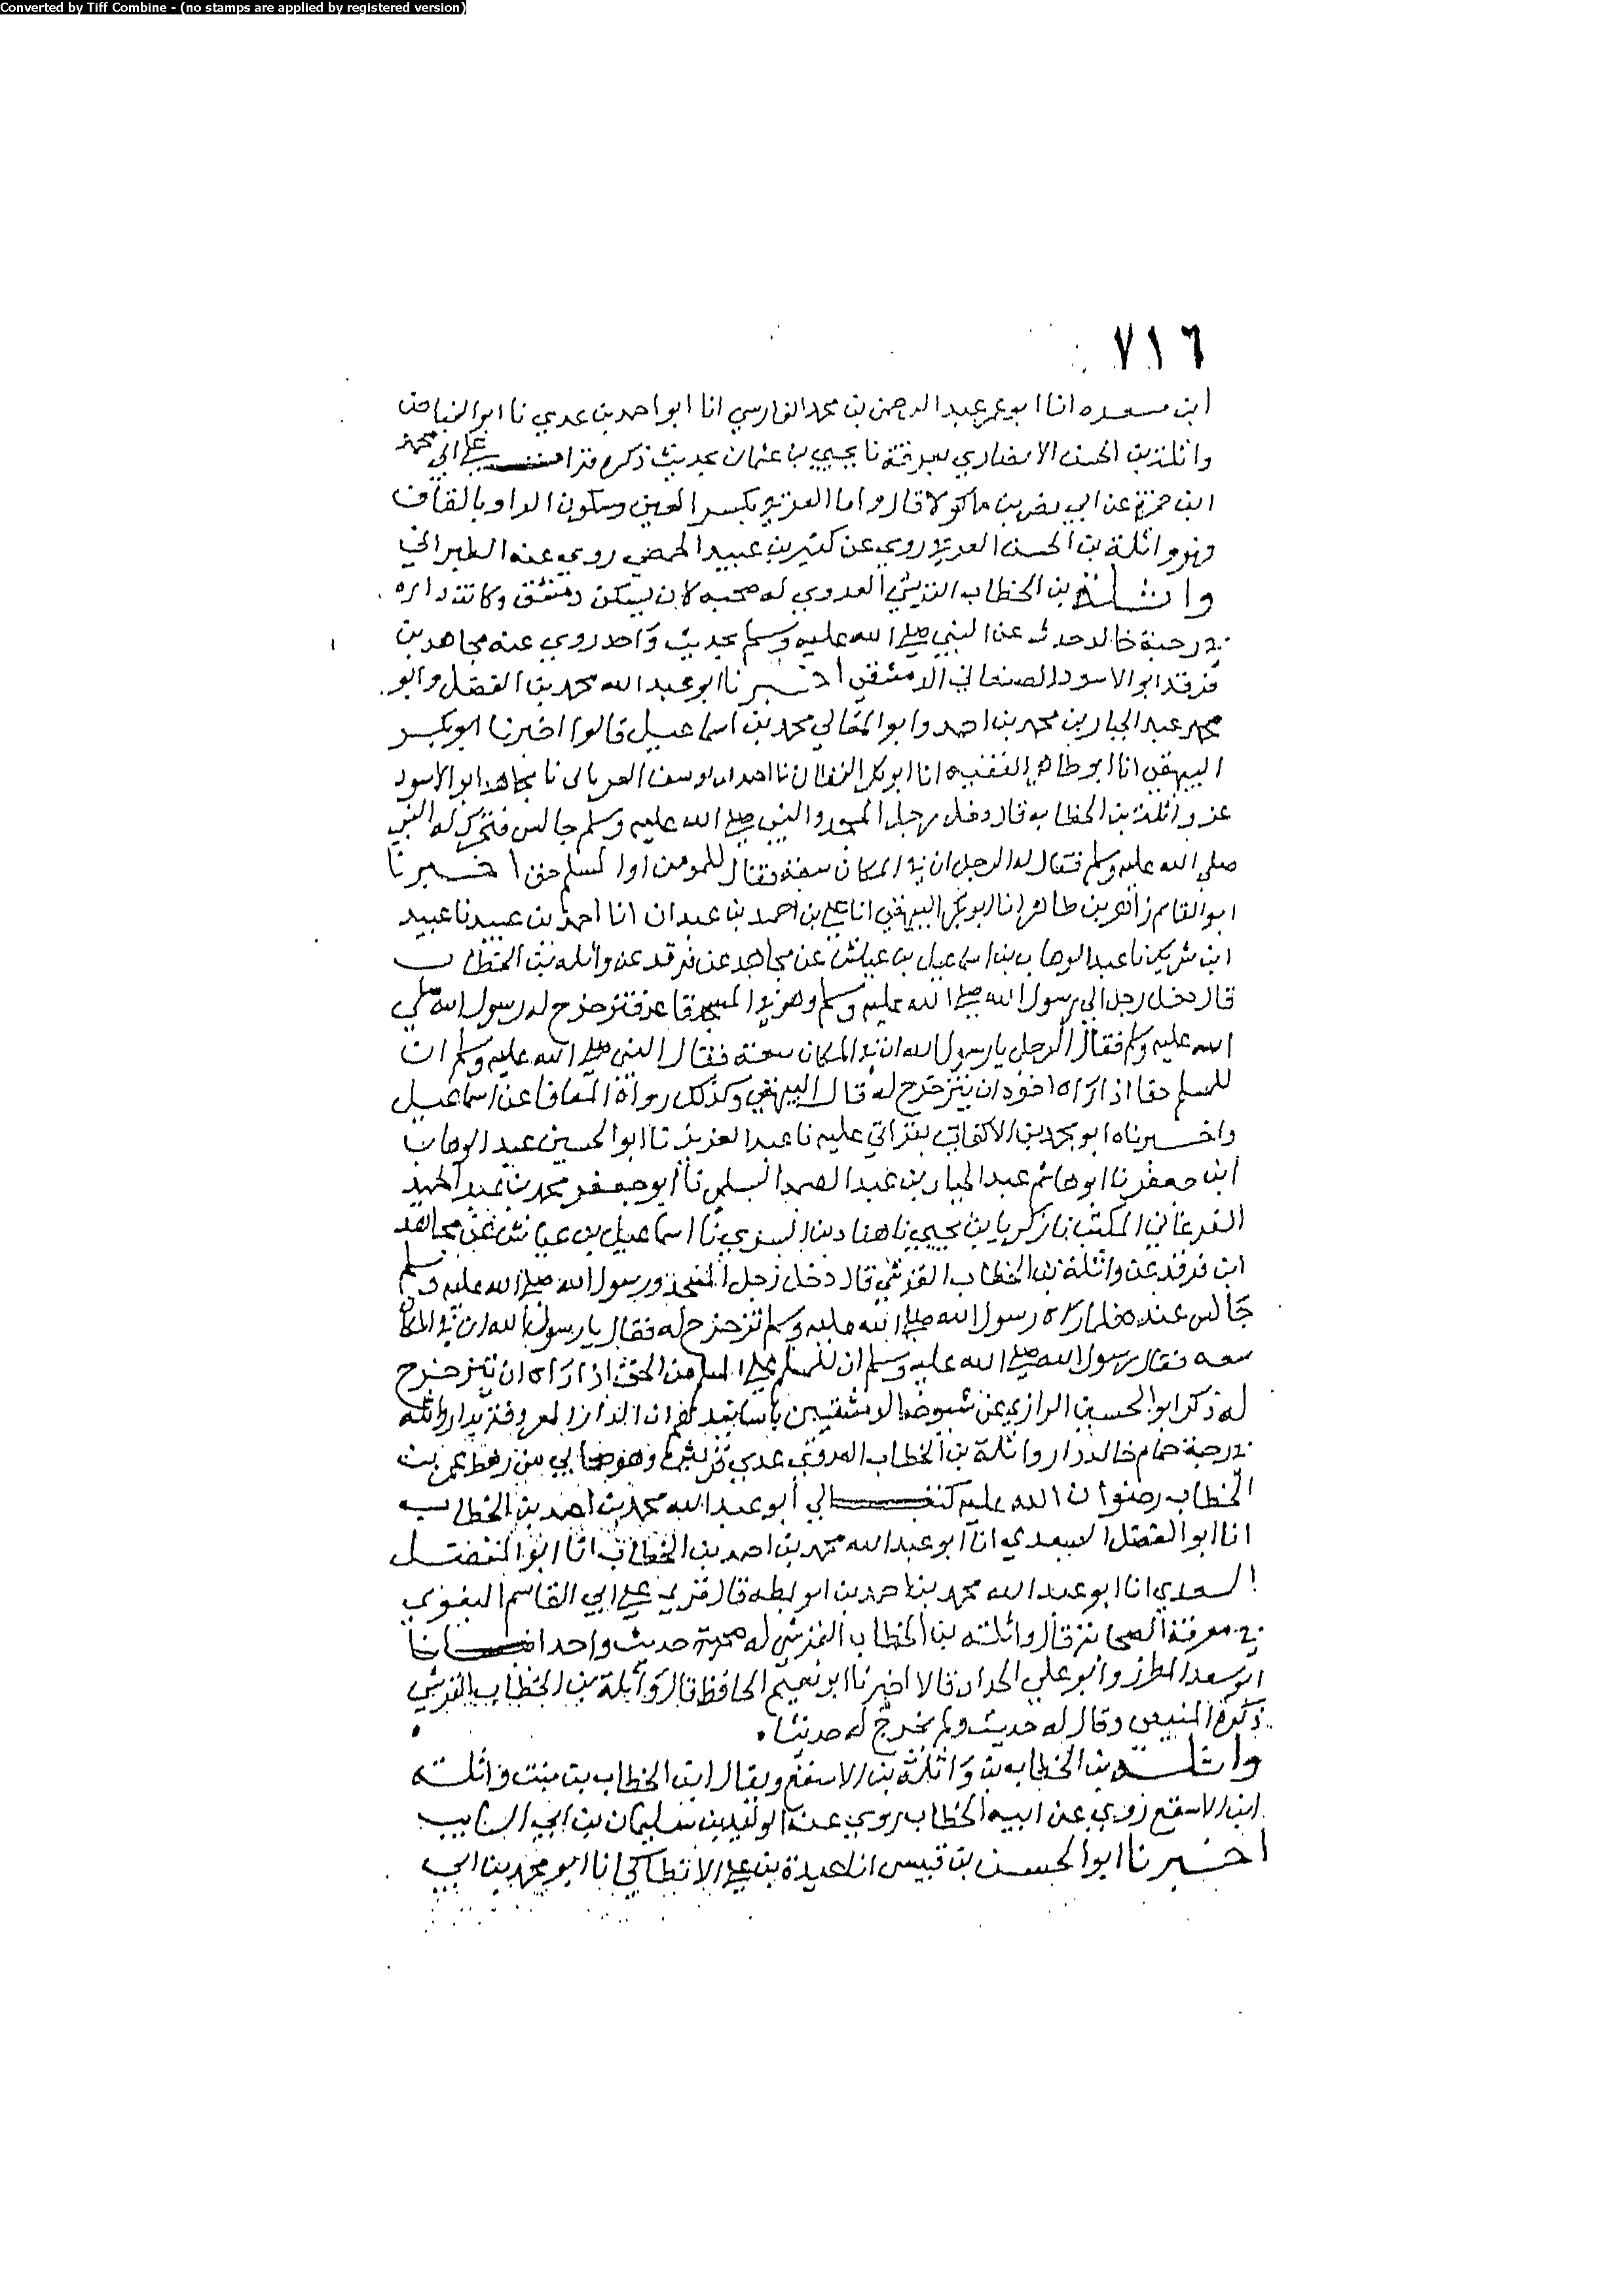 Converted by Tiff Combine - (no stamps are applied by registered version)
٧١٦
ابن مسعده انا ابو عمر عبد الرحمن بن محمد الفارسي انا ابو احمد بن عدي نا ابو الفياض
واثلة بن الحسن الانصاري بعرقة نا يحيي بن عثمان بحديث ذكره قرات علي ابي محمد
ابن حمزة عن ابي نصر بن ماكولا قال واما العرقي بكسر العين وسكون الرا وبالقاف
فهو واثلة بن الحسن العرقي روي عن كثير بن عبيد الحمصي روي عنه الطبراني
واثلة بن الخطاب القرشي العدوي له صحبه كان يسكن دمشق وكانت داره
في رحبة خالد حدث عن النبي صلى الله عليه وسلم بحديث واحد روي عنه مجاهد بن
فرقد ابو الاسود الصنعاني الدمشقي اخبرنا ابو عبد الله محمد بن الفضل وابو
محمد عبد الجبار بن محمد بن احمد وابو المعالي محمد بن اسماعيل قالوا اخبرنا ابو بكر
البيهقي انا ابو طاهر الفقيه انا ابو بكر القطان نا احمد بن يوسف الفريابي نا مجاهد ابو الاسود
عن واثلة بن الخطاب قال دخل رجل المسجد والنبي صلى الله عليه وسلم جالس فتحرك له النبي
صلى الله عليه وسلم فقال له الرجل ان في المكان سعة فقال للمومن او المسلم حق اخبرنا
ابو القاسم زاهر بن طاهر انا ابو بكر البيهقي انا علي بن احمد بن عبدان انا احمد بن عبيد نا عبيد
ابن شريك نا عبد الوهاب نا اسماعيل بن عياش عن مجاهد عن فرقد عن واثله بن الخطاب
قال دخل رجل الي رسول الله صلى الله عليه وسلم وهو في المسجد قاعد فتزحزح له رسول الله صلى
الله عليه وسلم فقال الرجل يا رسول الله ان في المكان سعة فقال النبي صلى الله عليه وسلم ان
للمسلم حقا اذا راه اخوه ان يتزحزح له قال البيهقي وكذلك رواه المعافا عن اسماعيل
واخبرناه ابو محمد بن الاكفاني بقراتي عليه نا عبد العزيز نا ابو الحسين عبد الوهاب
ابن جعفر نا ابو هاشم عبد الجبار بن عبد الصمد السلمي نا ابو جعفر محمد بن عبد الحميد
الفرغاني المكتب نا زكريا بن يحيي نا هناد بن السري نا اسماعيل بن عياش عن مجاهد
ابن فرقد عن واثلة بن الخطاب القرشي قال دخل رجل المسجد ورسول الله صلى الله عليه وسلم
جالس عنده فلما راه رسول الله صلى الله عليه وسلم تزحزح له فقال يا رسول الله ان في المكان
سعه فقال رسول الله صلى الله عليه وسلم ان للمسلم علي المسلم من الحق اذا راه ان يتزحزح
له ذكر ابو الحسين الرازي عن شيوخه الدمشقيين باسانيدهم ان الدار المعروفة بدار واثله
في رحبة حمام خالد دار واثلة بن الخطاب العدوي عدي قريش وهو صحابي من رهط عمر بن
الخطاب رضوان الله عليه كتب الي ابو عبد الله محمد بن احمد بن الخطاب
انا ابو الفضل السعدي انا ابو عبد الله محمد بن احمد بن الخطاب انا ابو الفضل
السعدي انا ابو عبد الله محمد بن احمد بن ابو بطه قال قري علي ابي القاسم البغوي
في معرفة الصحابة قال واثلة بن الخطاب القرشي له صحبة حديث واحد انبانا
ابو سعد المطرز وابو علي الحداد قالا اخبرنا ابو نعيم الحافظ قال واثلة بن الخطاب القرشي
ذكره المنيعي وقال له حديث ولم يخرج له حديثا
واثلة بن الخطاب بن واثلة بن الاسقع ويقال ابن الخطاب بن بنت واثلة
ابن الاسقع روي عن ابيه الخطاب روي عنه الوليد بن سليمان بن ابي السايب
اخبرنا ابو الحسن بن قبيس انا عبيدة بن علي الانطاكي انا ابو محمد بن ابي